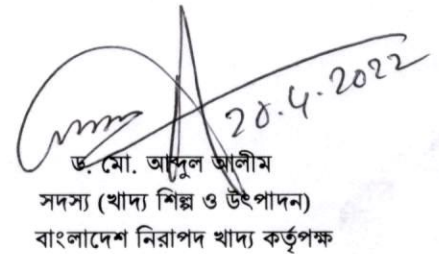 20.4.2022
ড. মো. আব্দুল আলীম
সদস্য (খাদ্য শিল্প ও উৎপাদন)
বাংলাদেশ নিরাপদ খাদ্য কর্তৃপক্ষ